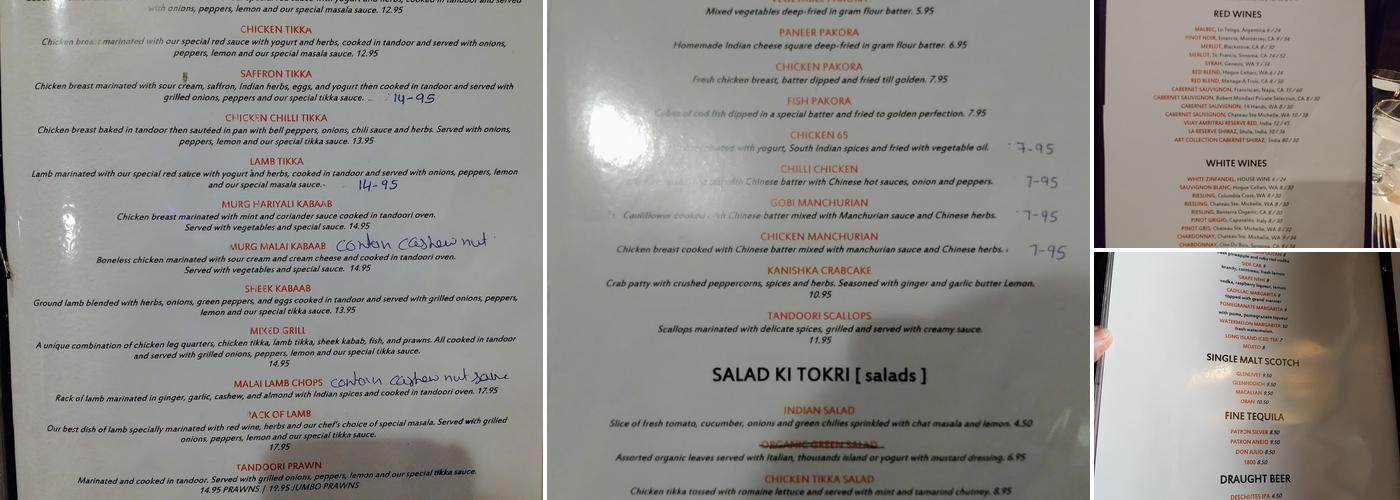 with onions, peppers, lemon and our special masala sauce. 12.95
CHICKEN TIKKA
Chicken breast marinated with our special red sauce with yogurt and herbs, cooked in tandoor and served with onions,
peppers, lemon and our special masala sauce. 12.95
SAFFRON TIKKA
Chicken breast marinated with sour cream, saffron, Indian herbs, eggs, and yogurt then cooked in tandoor and served with
grilled onions, peppers and our special tikka sauce. 14-95
CHICKEN CHILLI TIKKA
Chicken breast baked in tandoor then sautéed in pan with bell peppers, onions, chili sauce and herbs. Served with onions,
peppers, lemon and our special tikka sauce. 13.95
LAMB TIKKA
Lamb marinated with our special red sauce with yogurt and herbs, cooked in tandoor and served with onions, peppers, lemon
and our special masala sauce. 14-95
MURG HARIYALI KABAAB
Chicken breast marinated with mint and coriander sauce cooked in tandoori oven.
Served with vegetables and special sauce. 14.95
MURG MALAI KABAAB contain cashew nut
Boneless chicken marinated with sour cream and cream cheese and cooked in tandoori oven.
Served with vegetables and special sauce. 14.95
SHEEK KABAAB
Ground lamb blended with herbs, onions, green peppers, and eggs cooked in tandoor and served with grilled onions, peppers,
lemon and our special tikka sauce. 13.95
MIXED GRILL
A unique combination of chicken leg quarters, chicken tikka, lamb tikka, sheek kabab, fish, and prawns. All cooked in tandoor
and served with grilled onions, peppers, lemon and our special tikka sauce.
14.95
MALAI LAMB CHOPS contain cashew nut sauce
Rack of lamb marinated in ginger, garlic, cashew, and almond with Indian spices and cooked in tandoori oven. 17.95
RACK OF LAMB
Our best dish of lamb specially marinated with red wine, herbs and our chef's choice of special masala. Served with grilled
onions, peppers, lemon and our special tikka sauce.
17.95
TANDOORI PRAWN
Marinated and cooked in tandoor. Served with grilled onions, peppers, lemon and our special tikka sauce.
14.95 PRAWNS / 19.95 JUMBO PRAWNS
Mixed vegetables deep-fried in gram flour batter. 5.95
PANEER PAKORA
Homemade Indian cheese square deep-fried in gram flour batter. 6.95
CHICKEN PAKORA
Fresh chicken breast, batter dipped and fried till golden. 7.95
FISH PAKORA
Cubes of cod fish dipped in a special batter and fried to golden perfection. 7.95
CHICKEN 65
with yogurt, South Indian spices and fried with vegetable oil. 7-95
CHILLI CHICKEN
with Chinese batter with Chinese hot sauces, onion and peppers. 7-95
GOBI MANCHURIAN
Cauliflower cooked Chinese batter mixed with Manchurian sauce and Chinese herbs. 7-95
CHICKEN MANCHURIAN
Chicken breast cooked with Chinese batter mixed with manchurian sauce and Chinese herbs. 7-95
KANISHKA CRABCAKE
Crab patty with crushed peppercorns, spices and herbs. Seasoned with ginger and garlic butter Lemon.
10.95
TANDOORI SCALLOPS
Scallops marinated with delicate spices, grilled and served with creamy sauce.
11.95
SALAD KI TOKRI [ salads ]
INDIAN SALAD
Slice of fresh tomato, cucumber, onions and green chilies sprinkled with chat masala and lemon. 4.50
ORGANIC GREEN SALAD
Assorted organic leaves served with Italian, thousands island or yogurt with mustard dressing. 6.95
CHICKEN TIKKA SALAD
Chicken tikka tossed with romaine lettuce and served with mint and tamarind chutney. 8.95
RED WINES
MALBEC, Lo Tengo, Argentina 6 / 24
PINOT NOIR, Estancia, Monterey, CA 9 / 34
MERLOT, Blackstone, CA 8 / 30
MERLOT, St. Francis, Sonoma, CA 14 / 52
SYRAH, Genesis, WA 9 / 34
RED BLEND, Hogue Cellars, WA 6 / 24
RED BLEND, Menage A Trois, CA 8 / 30
CABERNET SAUVIGNON, Franciscan, Napa, CA 15 / 60
CABERNET SAUVIGNON, Robert Mondavi Private Selection, CA 8 / 30
CABERNET SAUVIGNON, 14 Hands, WA 8 / 30
CABERNET SAUVIGNON, Chateau Ste Michelle, WA 10 / 38
VIJAY AMRITRAJ RESERVE RED, India 12 / 45
LA RESERVE SHIRAZ, Shula, India 10 / 36
ART COLLECTION CABERNET SHIRAZ, India 80 / 30
WHITE WINES
WHITE ZINFANDEL, HOUSE WINE 6 / 24
SAUVIGNON BLANC, Hogue Cellars, WA 8 / 30
RIESLING, Columbia Crest, WA 8 / 30
RIESLING, Chateau Ste. Michelle, WA 8 / 30
RIESLING, Bonterra Organic, CA 8 / 30
PINOT GRIGIO, Caposaldo, Italy 8 / 30
PINOT GRIS, Chateau Ste. Michelle, WA 8 / 32
CHARDONNAY, Chateau Ste. Michelle, WA 9 / 34
CHARDONNAY, Clos Du Bois, Sonoma, CA 9 / 34
SIDE CAR 9
brandy, cointreau, fresh lemon
GRAPE NEHI 8
vodka, raspberry liqueur, lemon
CADILLAC MARGARITA 9
topped with grand marnier
POMEGRANATE MARGARITA 9
with pama, pomegranate liqueur
WATERMELON MARGARITA 10
fresh watermelon.
LONG ISLAND ICED TEA 7
MOJITO 8
SINGLE MALT SCOTCH
GLENLIVET 9.50
GLENFIDDICH 9.50
MACALLAN 9.50
OBAN 10.50
FINE TEQUILA
PATRON SILVER 8.50
PATRON ANEJO 9.50
DON JULIO 8.50
1800 8.50
DRAUGHT BEER
DESCHUTES IPA 4.50